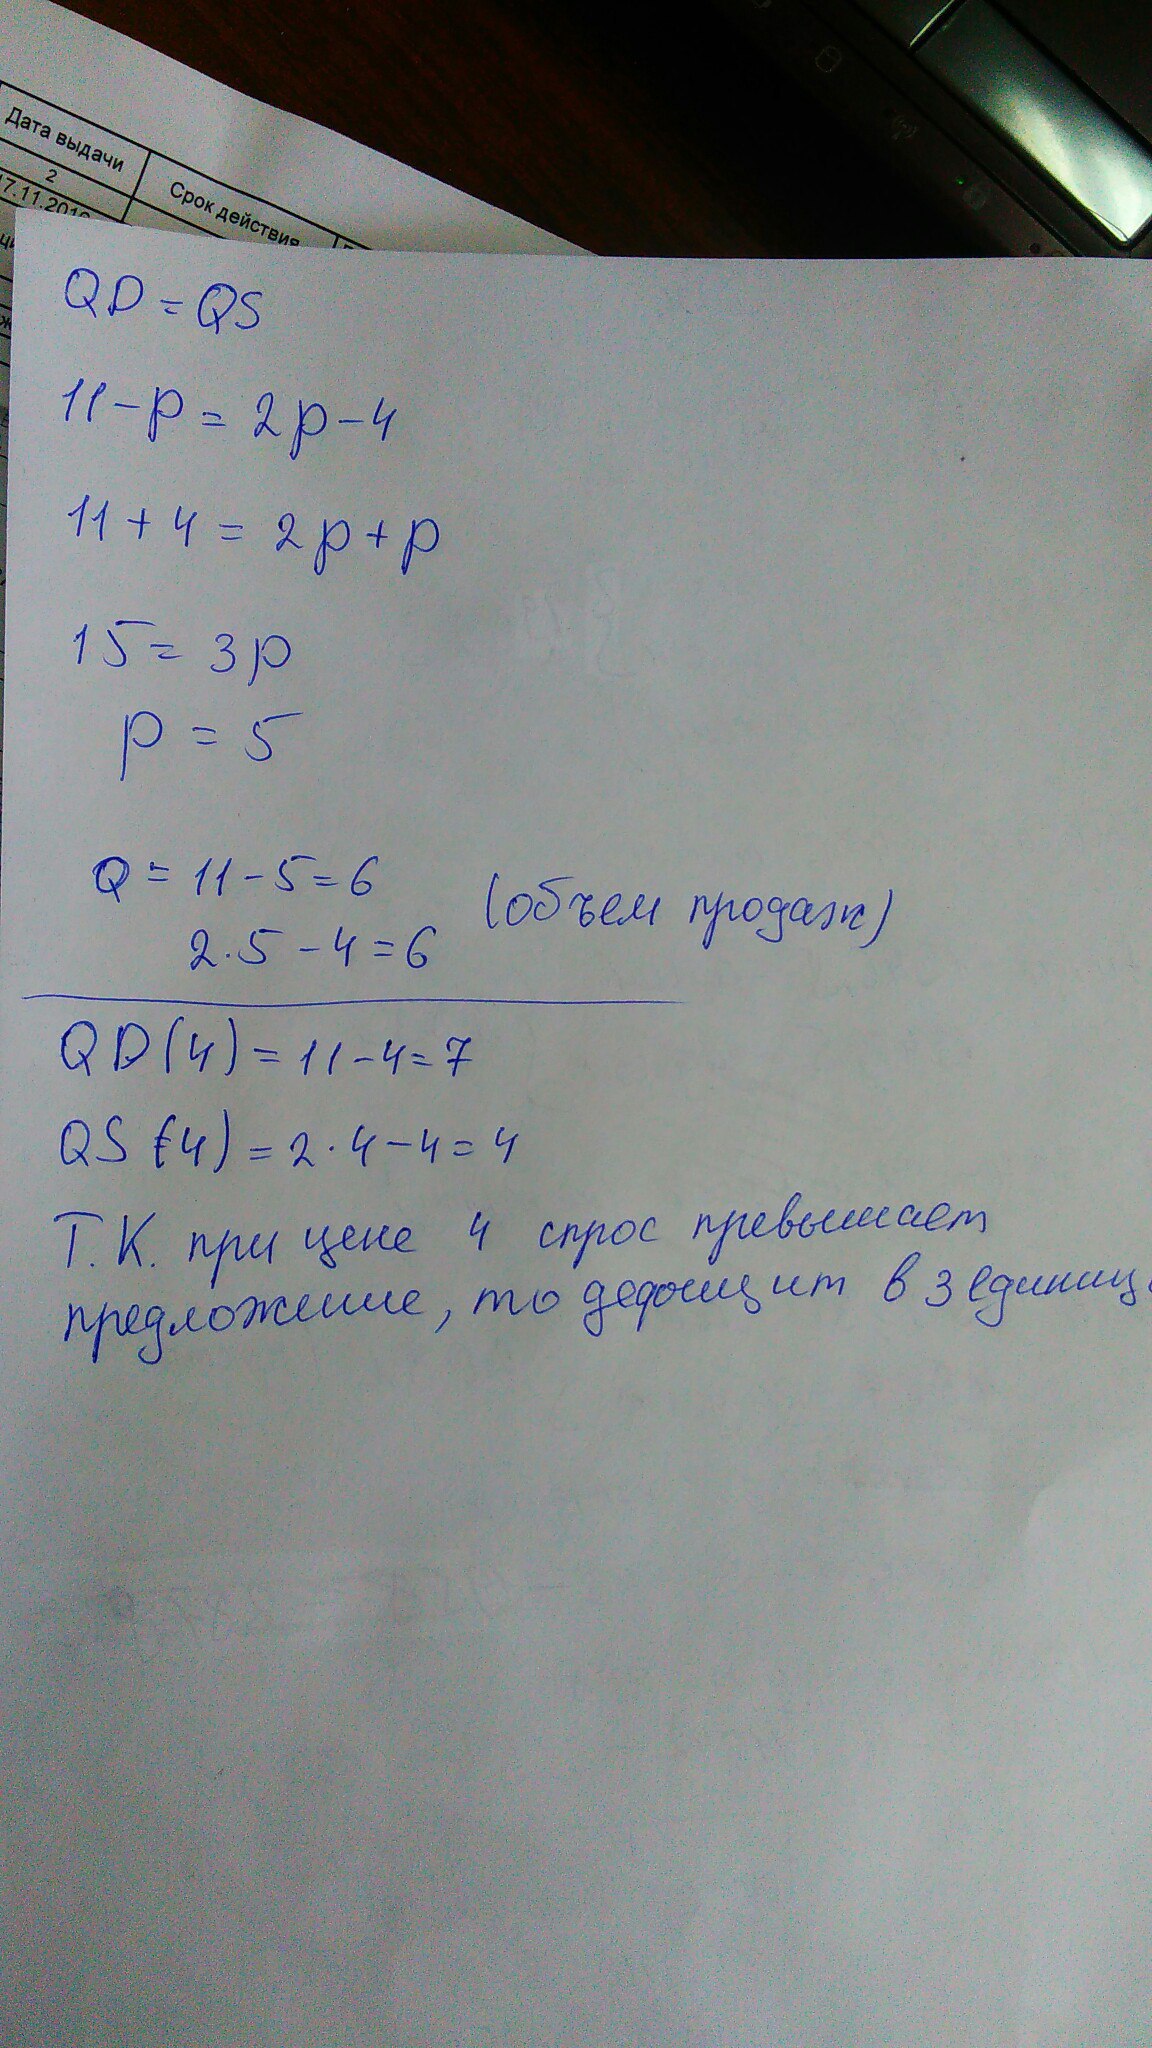 Дата выдачи
Срок действия
2
17.11.201
QD = QS
11-p = 2p-4
11+4 = 2p+p
15 = 3p
p = 5
Q = 11-5=6
(объем продаж)
2·5-4=6
QD(4) = 11-4=7
QS(4) = 2·4-4=4
Т.К. при цене 4 спрос превышает
предложение, то дефицит в 3 единиц